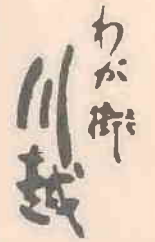 わが街
川越